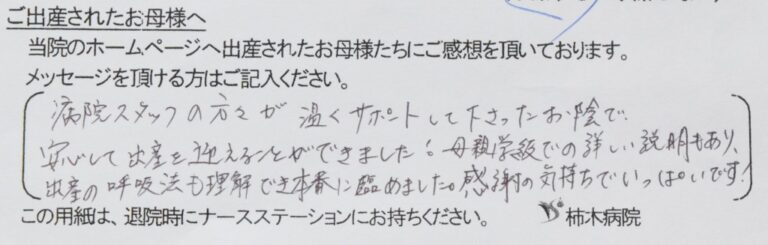 ご出産されたお母様へ
当院のホームページへ出産されたお母様たちにご感想を頂いております。
メッセージを頂ける方はご記入ください。
病院スタッフの方々が温くサポートして下さったお陰で
安心して出産を迎えることができました！母親学級での詳しい説明もあり、
出産の呼吸法も理解でき本番に臨めました。感謝の気持ちでいっぱいです！
この用紙は、退院時にナースステーションにお持ちください。 柿木病院